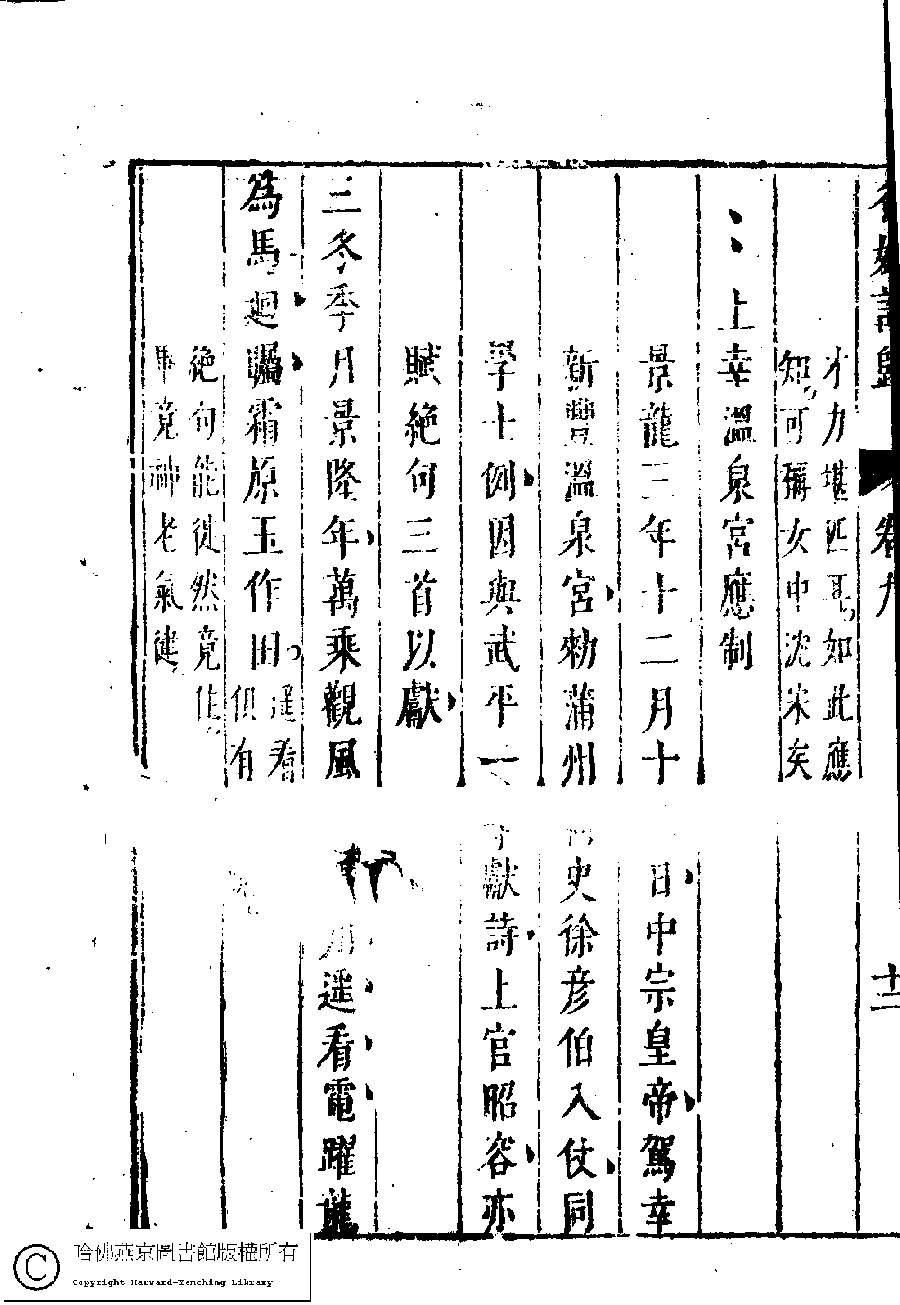 名媛詩歸 卷九 十二
才力堪匹耳如此應
知可稱女中沈宋矣
上幸溫泉宮應制
景龍三年十二月十 日中宗皇帝駕幸
新豐溫泉宮勑蒲州 史徐彦伯入仗同
學士例因與武平一 等獻詩上官昭容亦
賦絶句三首以獻
三冬季月景隆年萬乘觀風 川遥看電躍龍
為馬迴矚霜原玉作田遥看
俱有
絶句能徒然竟住
畢竟神老氣健
哈佛燕京圖書館版權所有
Copyright Harvard-Yenching Library